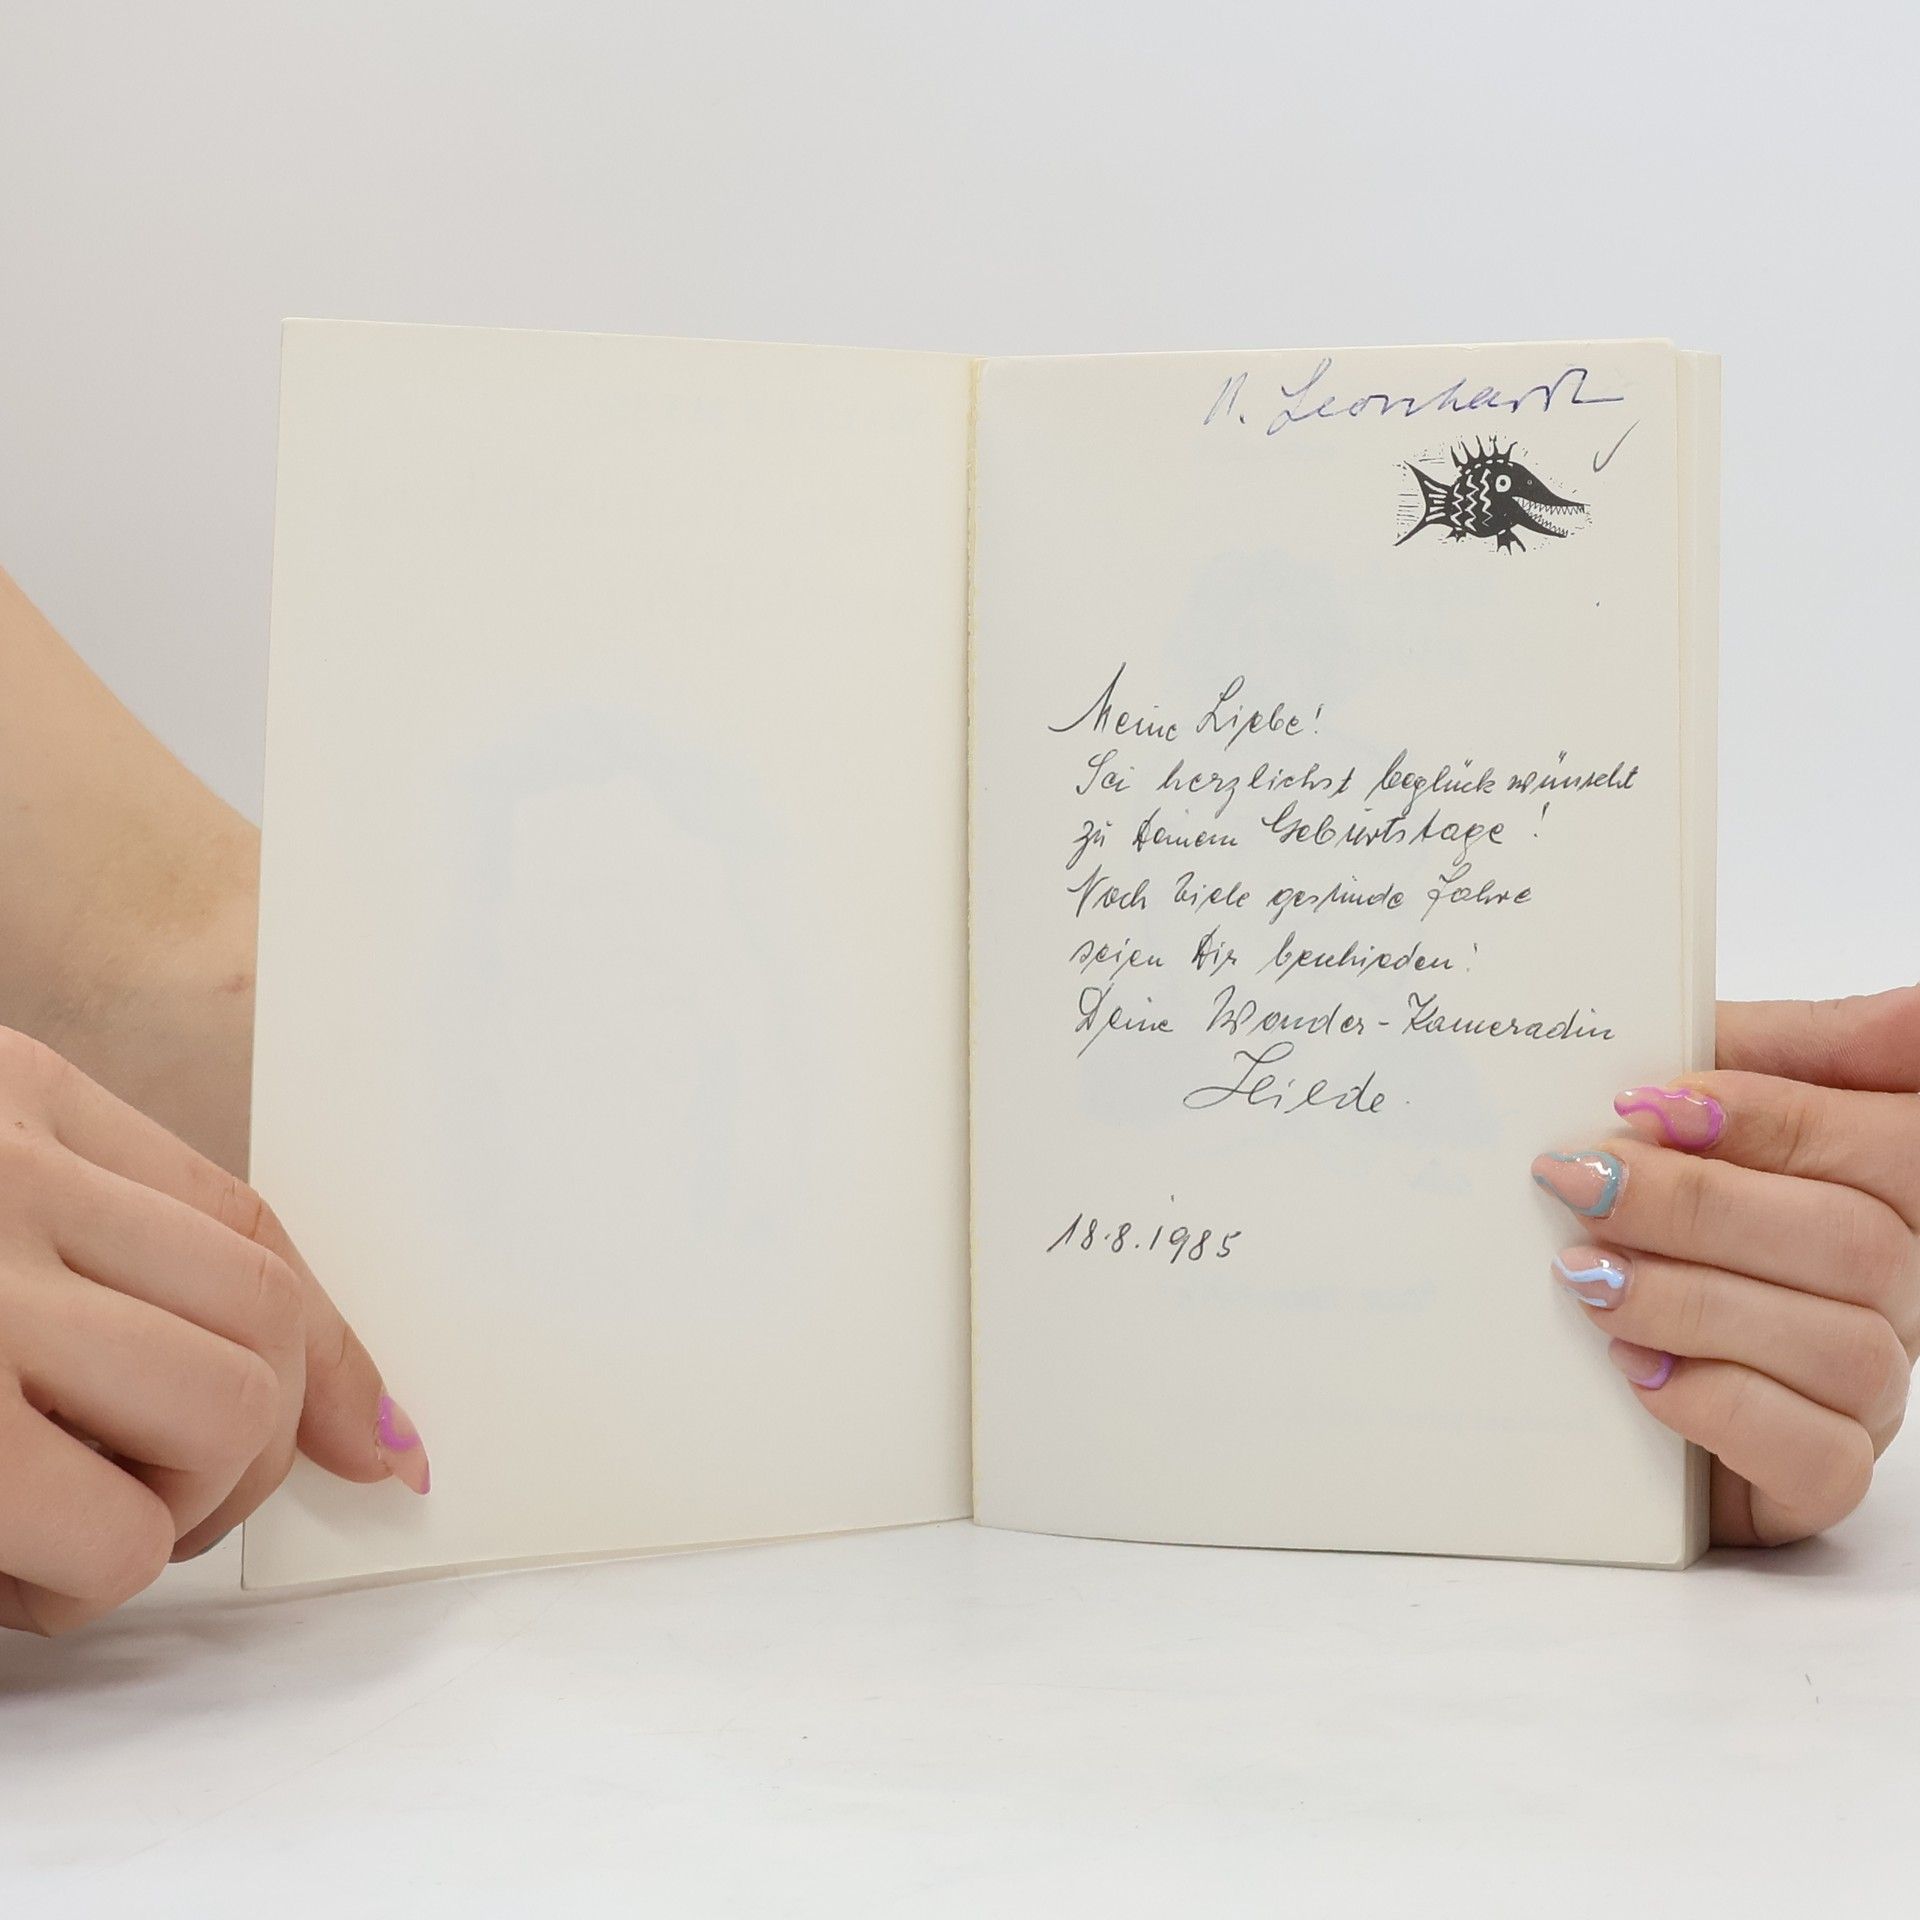 Leonhardt
Meine Liebe!
Sei herzlichst beglückwünscht
zu Deinem Geburtstage!
Noch viele gesunde Jahre
seien Dir beschieden!
Deine Wander-Kameradin
Hilde.
18.8.1985